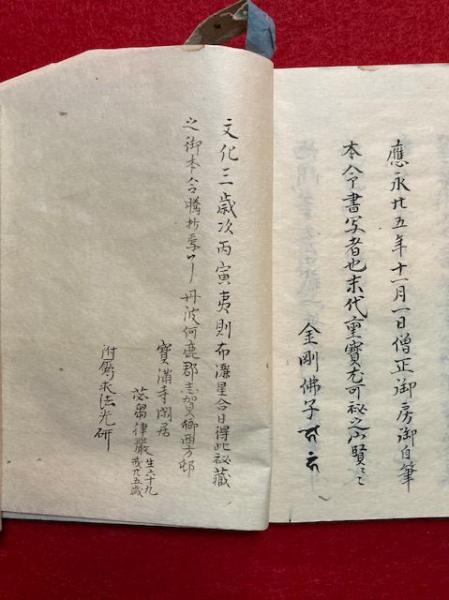 應永廿五年十一月一日僧正御房御自筆
本令書写者也末代重寶尤可秘之〻賢〻〻
金剛佛子
文化三歳次丙寅夷則布灑星合日得此秘蔵
之御本令騰抄畢 丹波何鹿郡志賀郷西方邨
寳満寺閑居
苾芻律嚴 生六十九 戒廿五歳
附属求法光研